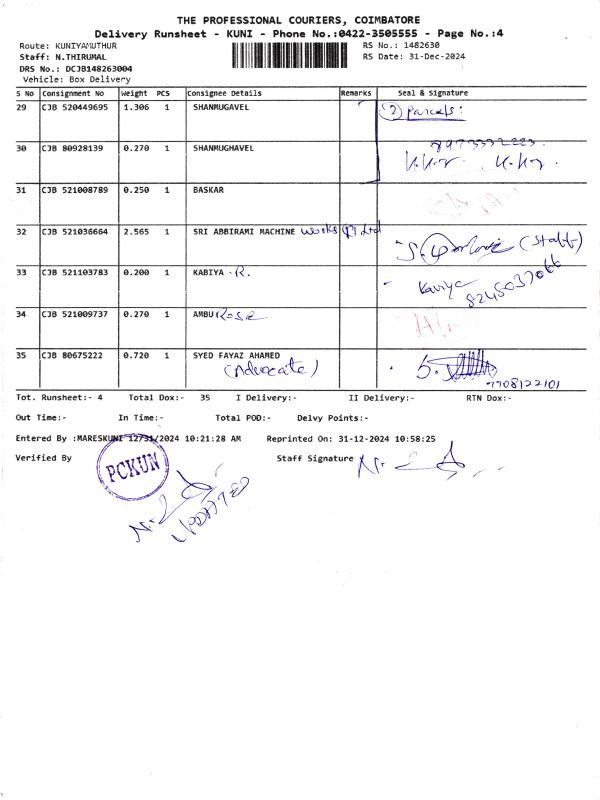 THE PROFESSIONAL COURIERS, COIMBATORE
Delivery Runsheet - KUNI - Phone No.:0422-3505555 - Page No.:4
Route: KUNIYAMUTHUR RS No.: 1482630
Staff: N.THIRUMAL RS Date: 31-Dec-2024
DRS No.: DCJB148263004
Vehicle: Box Delivery
S No Consignment No Weight PCS Consignee Details Remarks Seal & Signature
29 CJB 520449695 1.306 1 SHANMUGAVEL 2 Parcels:
30 CJB 80928139 0.270 1 SHANMUGHAVEL
31 CJB 521008789 0.250 1 BASKAR
32 CJB 521036664 2.565 1 SRI ABBIRAMI MACHINE Works (P) Ltd (Staff)
33 CJB 521103783 0.200 1 KABIYA . R. Kaviya
34 CJB 521009737 0.270 1 AMBU Rose
35 CJB 80675222 0.720 1 SYED FAYAZ AHAMED
(Advocate) 7708122101
Tot. Runsheet:- 4 Total Dox:- 35 I Delivery:- II Delivery:- RTN Dox:-
Out Time:- In Time:- Total POD:- Delvy Points:-
Entered By :MARESKUNI 12/31/2024 10:21:28 AM Reprinted On: 31-12-2024 10:58:25
Verified By Staff Signature
PCKUN
UPDATED